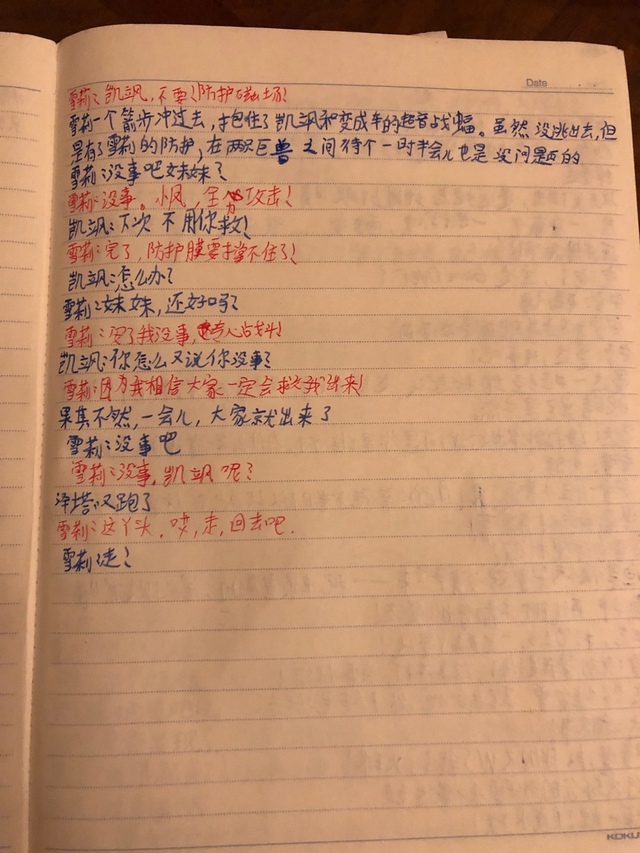 Date
雪莉：凯飒，不要！防护磁场！
雪莉一个箭步冲过去，抱住了凯飒和变成半的超音战蝠。虽然没逃出去，但
是有了雪莉的防护，在两只巨兽之间待个一时半会儿也是没问题的
雪莉：没事吧妹妹？
雪莉：没事。小风，全力攻击！
凯飒：下次不用你救！
雪莉：完了，防护膜要撑不住了！
凯飒：怎么办？
雪莉：妹妹，还好吗？
雪莉：我没事，专心占斗！
凯飒：你怎么又说你没事？
雪莉：因为我相信大家一定会救我出来！
果其不然，一会儿，大家就出来了
雪莉：没事吧
雪莉：没事，凯飒呢？
泽塔：又跑了
雪莉：这丫头，哎，走，回去吧.
雪莉：走！
KOKU